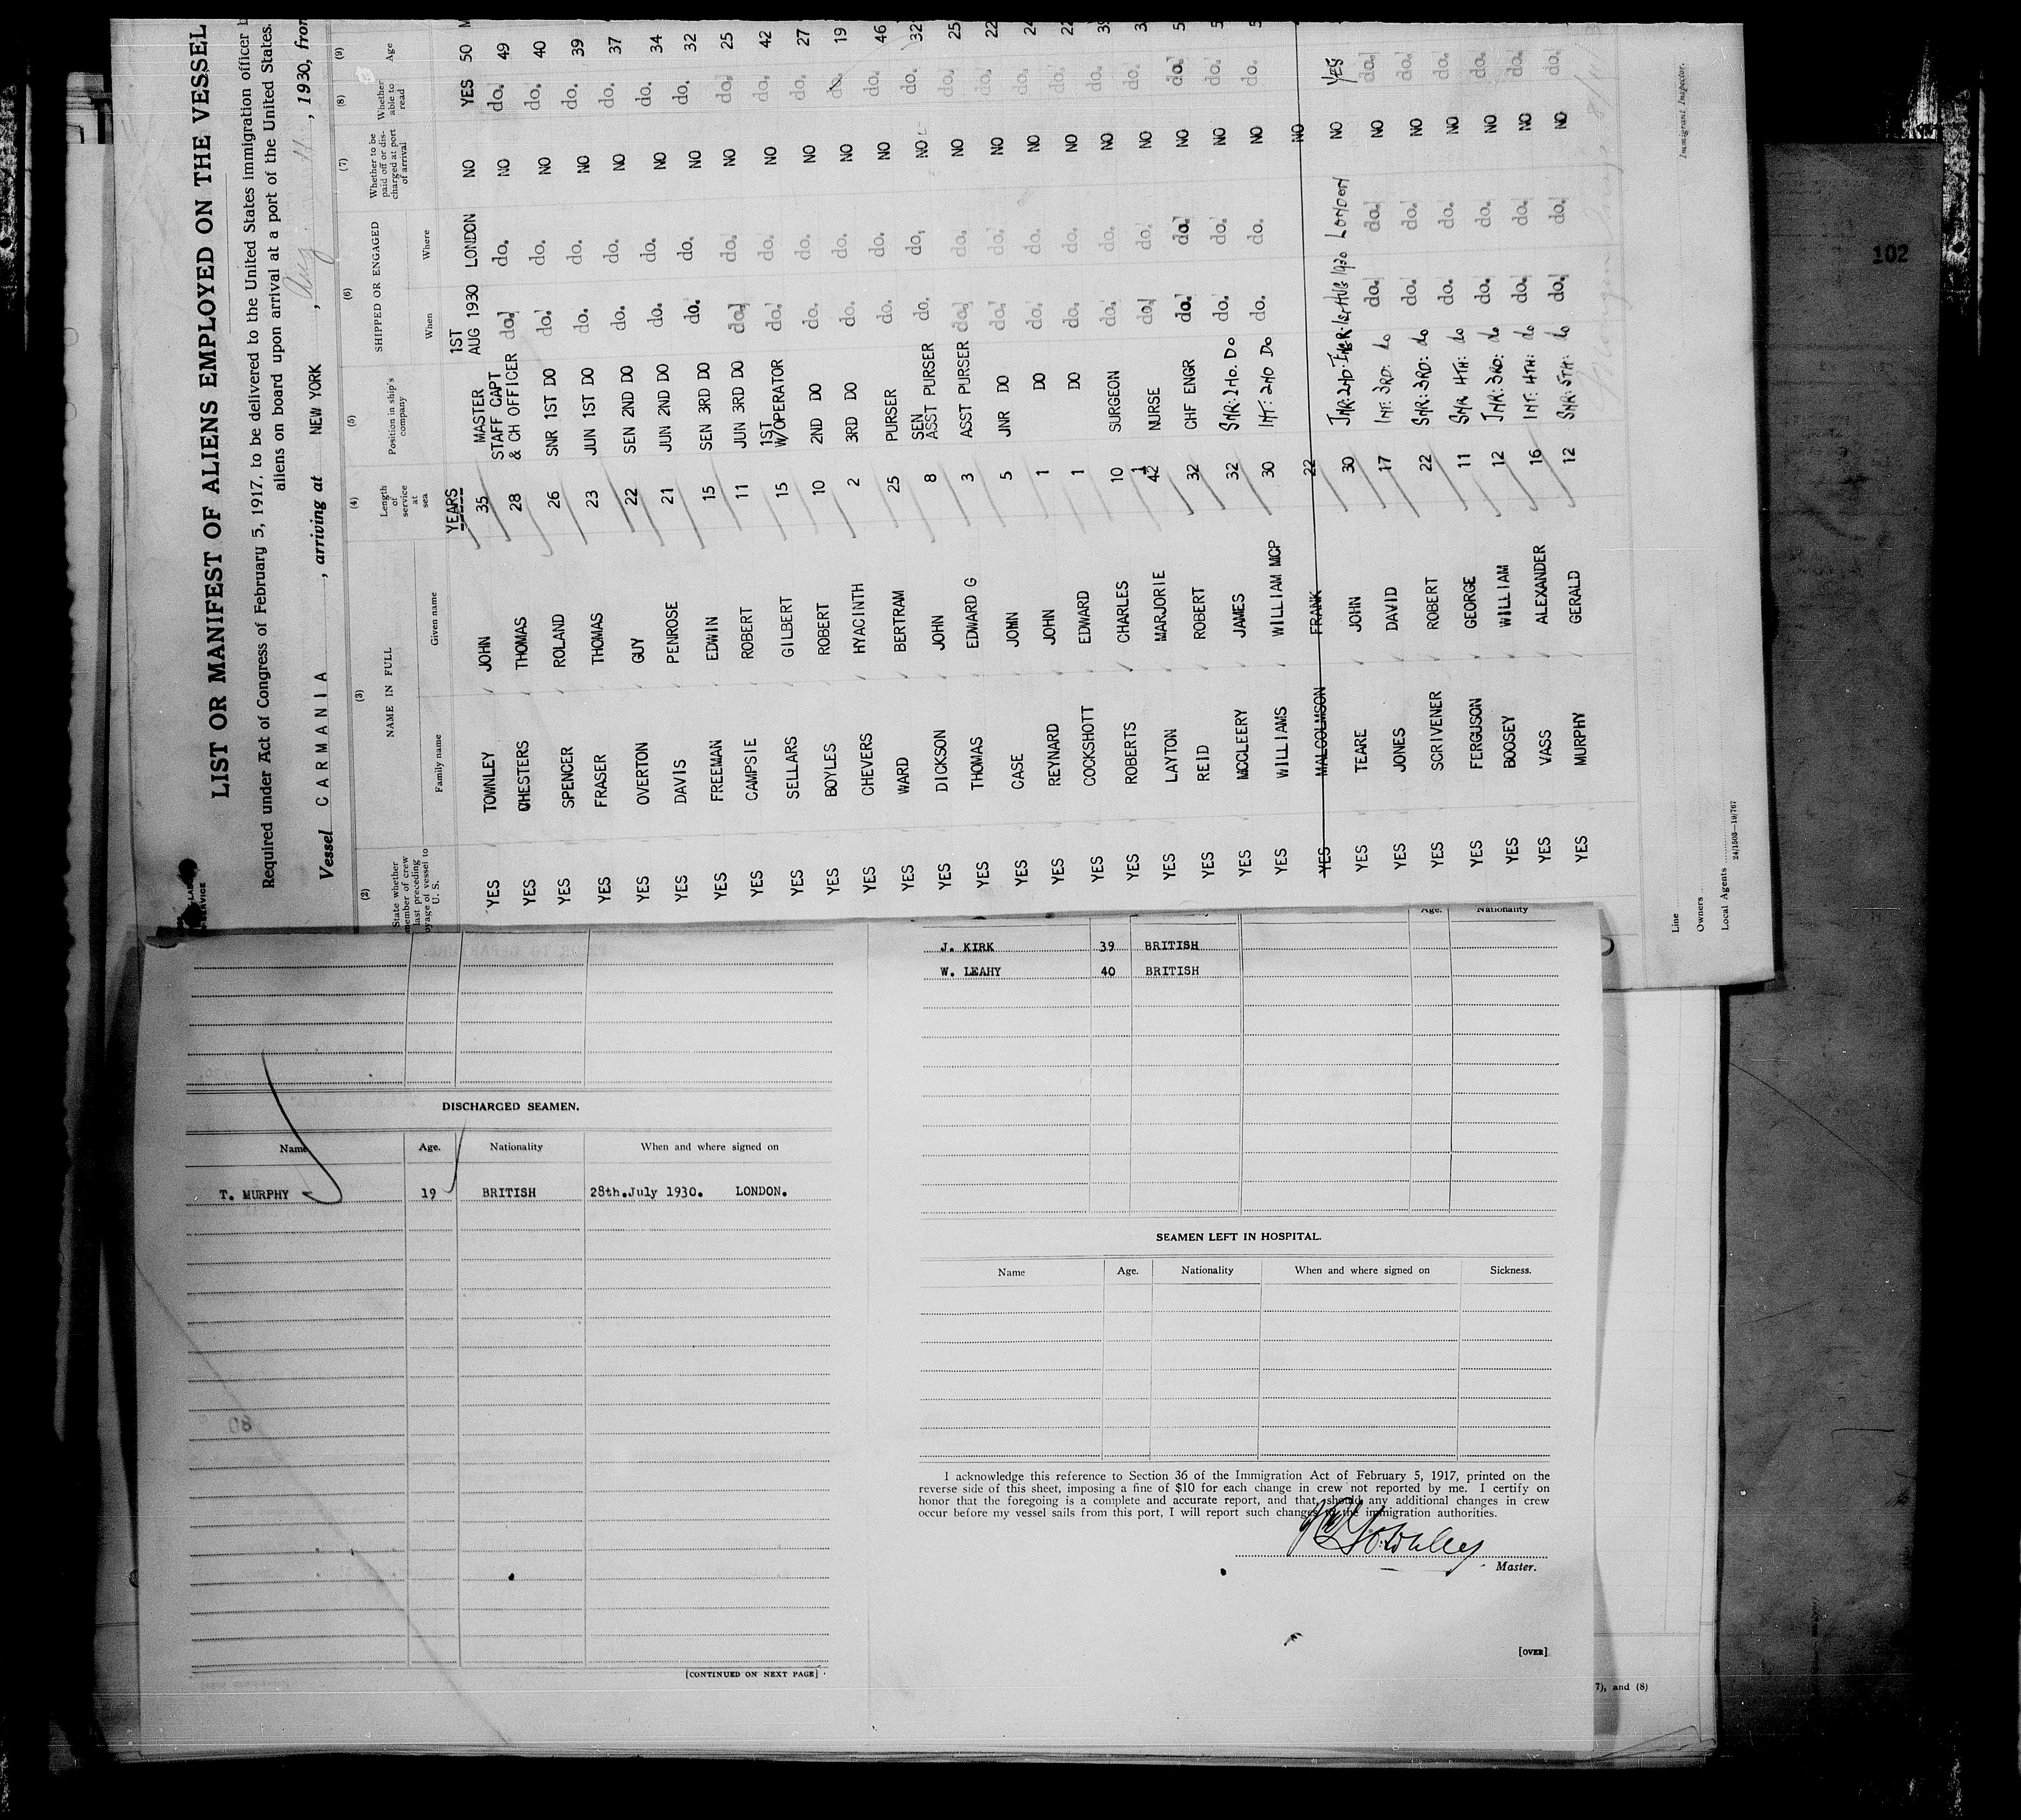 LIST OR MANIFEST OF ALIENS EMPLOYED ON THE VESSEL
Required under Act of Congress of February 5, 1917, to be delivered to the United States immigration officer b
aliens on board upon arrival at a port of the United States.
Vessel CARMANIA, arriving at NEW YORK, Aug 11, 1930, from
(2) (3) (4) (5) (6) (7) (8) (9)
State whether member of crew last preceding voyage of vessel to U. S. NAME IN FULL Length of service at sea Position in ship's company SHIPPED OR ENGAGED Whether to be paid off or discharged at port of arrival Whether able to read Age
Family name Given name When Where
YES TOWNLEY JOHN YEARS 35 MASTER 1ST AUG 1930 LONDON NO YES 50 M
YES CHESTERS THOMAS 28 STAFF CAPT & CH OFFICER do. do. NO do. 49
YES SPENCER ROLAND 26 SNR 1ST DO do. do. NO do. 40
YES FRASER THOMAS 23 JUN 1ST DO do. do. NO do. 39
YES OVERTON GUY 22 SEN 2ND DO do. do. NO do. 37
YES DAVIS PENROSE 21 JUN 2ND DO do. do. NO do. 34
YES FREEMAN EDWIN 15 SEN 3RD DO do. do. NO do. 32
YES CAMPSIE ROBERT 11 JUN 3RD DO do. do. NO do. 25
YES SELLARS GILBERT 15 1ST W/OPERATOR do. do. NO do. 42
YES BOYLES ROBERT 10 2ND DO do. do. NO do. 27
YES CHEVERS HYACINTH 2 3RD DO do. do. NO do. 19
YES WARD BERTRAM 25 PURSER do. do. NO do. 46
YES DICKSON JOHN 8 SEN ASST PURSER do. do. NO do. 32
YES THOMAS EDWARD G 3 ASST PURSER do. do. NO do. 25
YES CASE JOHN 5 JNR DO do. do. NO do. 22
YES REYNARD JOHN 1 DO do. do. NO do. 24
YES COCKSHOTT EDWARD 1 DO do. do. NO do. 22
YES ROBERTS CHARLES 10 SURGEON do. do. NO do.
YES LAYTON MARJORIE NURSE do. do. NO do.
YES REID ROBERT 32 CHF ENGR do. do. NO do.
YES MCCLEERY JAMES 32 SNR: 2ND. DO do. do. NO do.
YES WILLIAMS WILLIAM MCP 30 INT: 2ND DO do. do. NO do.
YES MALCOLMSON FRANK 22 NO
YES TEARE JOHN 30 JNR: 2ND: 1st AUG 1930 LONDON NO YES
YES JONES DAVID 17 INT: 3RD: do do. do. NO do.
YES SCRIVENER ROBERT 22 SNR: 3RD: do do. do. NO do.
YES FERGUSON GEORGE 11 SNR 4TH: do do. do. NO do.
YES BOOSEY WILLIAM 12 JNR: 3RD: do do. do. NO do.
YES VASS ALEXANDER 16 INT: 4TH: do do. do. NO do.
YES MURPHY GERALD 12 SNR: 5TH: do do. do. NO do.
Line
Owners
Local Agents
Immigrant Inspector.
102
DISCHARGED SEAMEN.
Name Age. Nationality When and where signed on
T. MURPHY 19 BRITISH 28th.July 1930. LONDON.
[CONTINUED ON NEXT PAGE]
Age. Nationality
J. KIRK 39 BRITISH
W. LEAHY 40 BRITISH
SEAMEN LEFT IN HOSPITAL.
Name Age. Nationality When and where signed on Sickness.
I acknowledge this reference to Section 36 of the Immigration Act of February 5, 1917, printed on the
reverse side of this sheet, imposing a fine of $10 for each change in crew not reported by me. I certify on
honor that the foregoing is a complete and accurate report, and that should any additional changes in crew
occur before my vessel sails from this port, I will report such changes to the immigration authorities.
Townley
Master.
[OVER]
7), and (8)